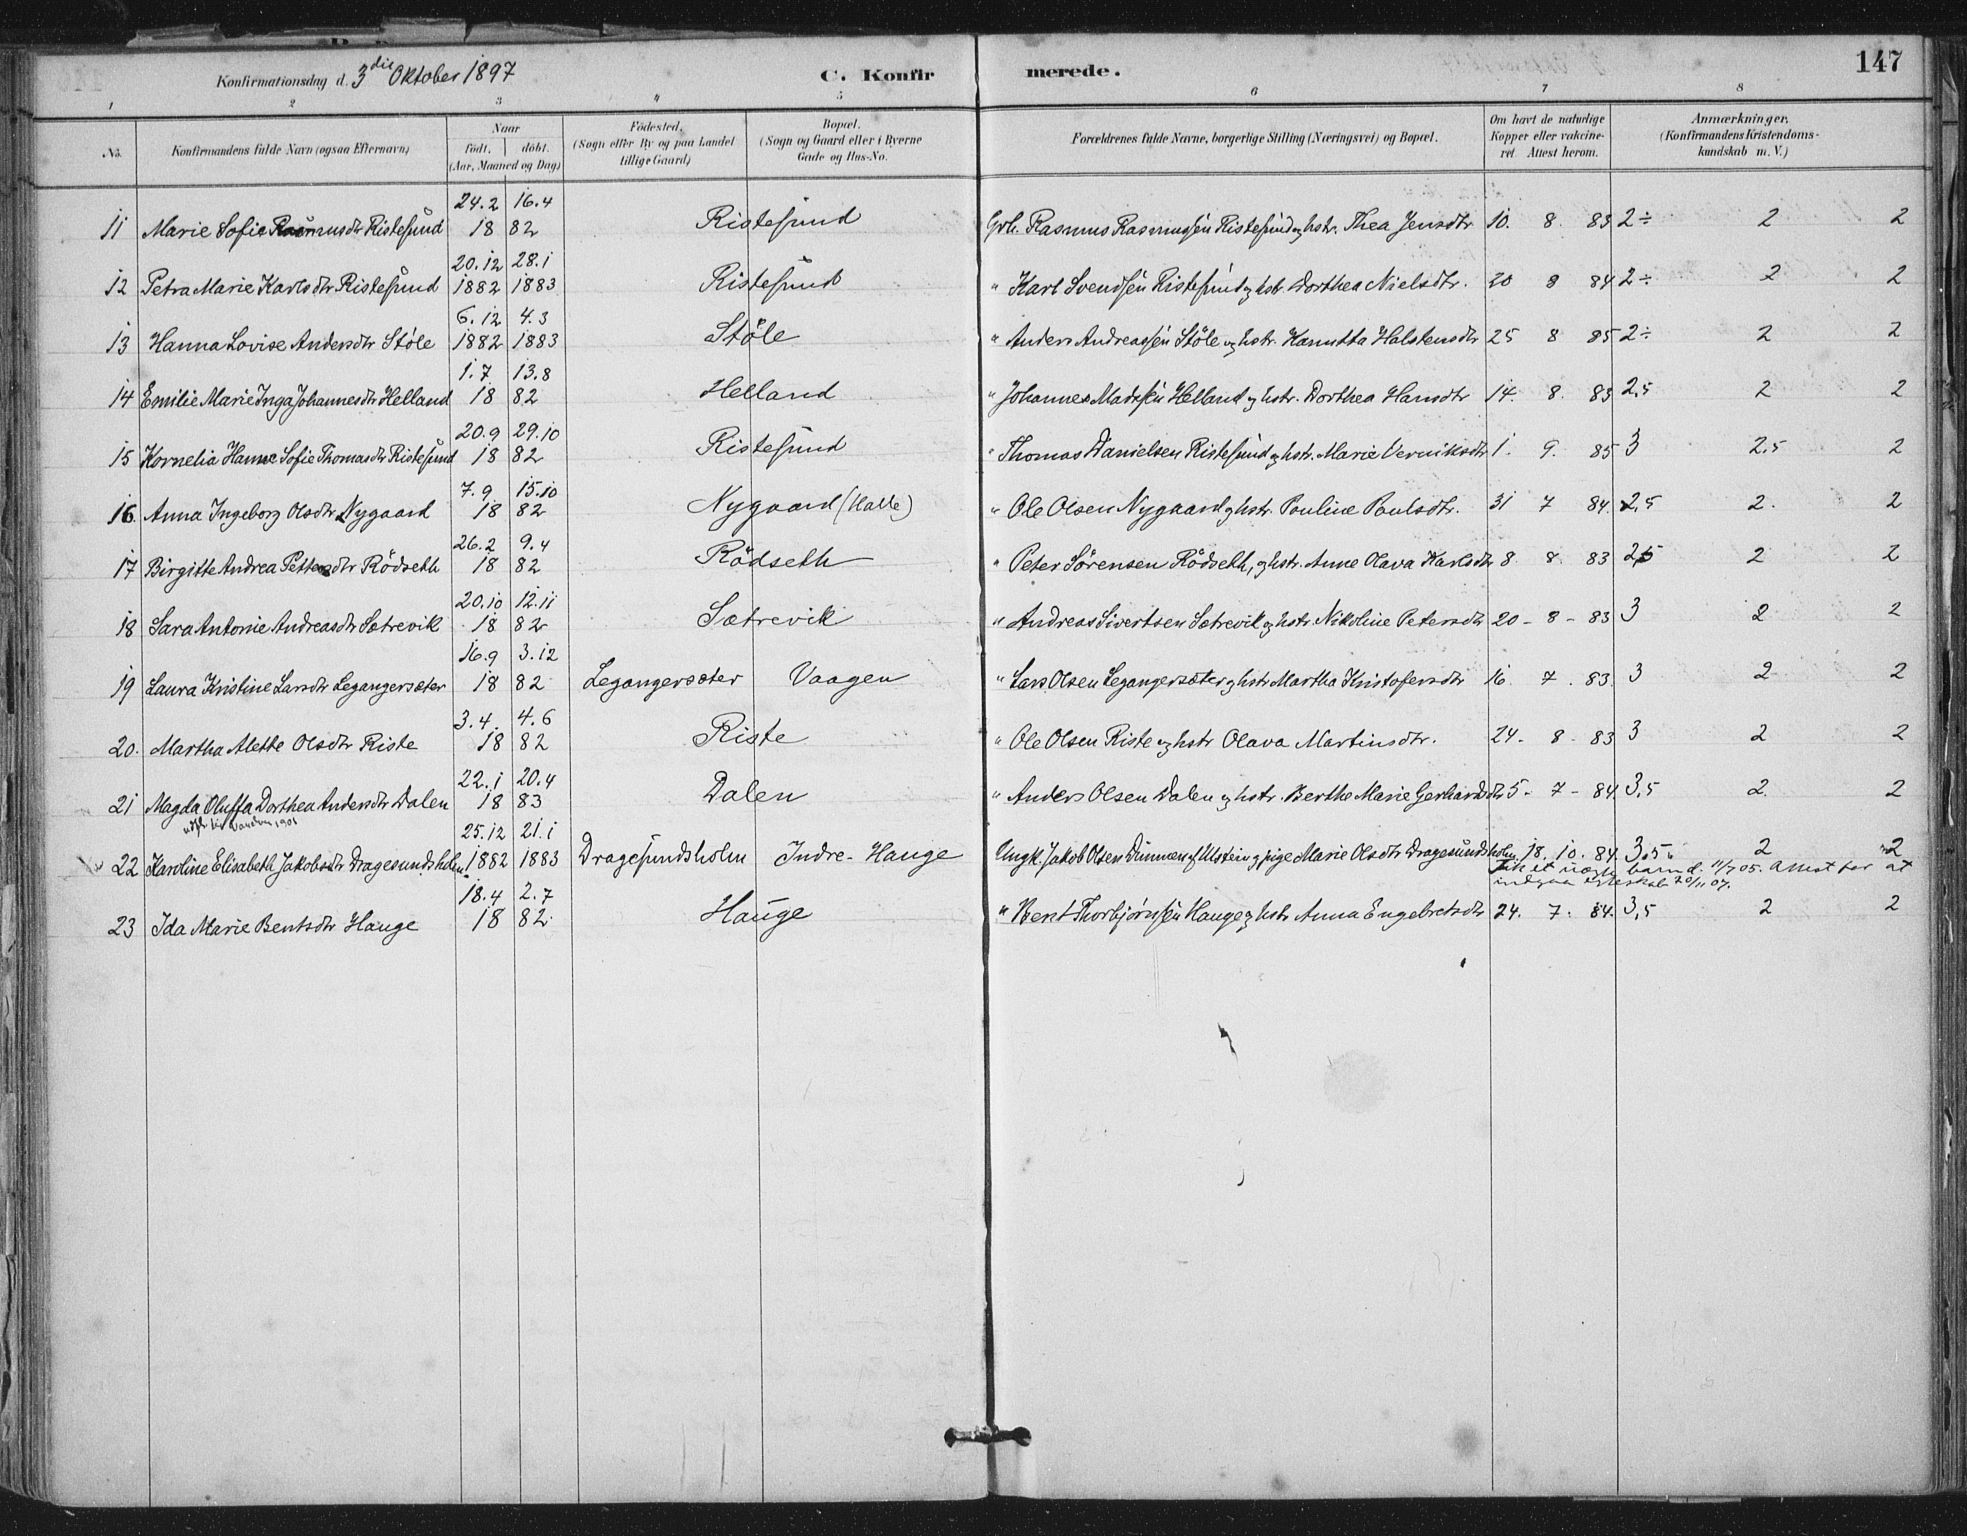 Konfirmationsdag d. 3die Oktober 1897 C. Konfirmerede. 147
1 2 3 4 5 6 7 8
No. Konfirmandens fulde Navn (ogsaa Efternavn) Naar født. døbt. (Aar, Maaned og Dag) Fødested. (Sogn eller By og paa Landet tillige Gaard) Bopæl. (Sogn og Gaard eller i Byerne Gade og Hus-No. Forældrenes fulde Navne, borgerlige Stilling (Næringsvei) og Bopæl. Om havt de naturlige Kopper eller vakcineret. Attest herom. Anmærkninger. (Konfirmandens Kristendomskundskab m. V.)
24.2 16.4
11 Marie Sofie Rasmusdtr Ristesund 18 82 Ristesund Grb. Rasmus Rasmussen Ristesund og hstr. Thea Jensdtr 10. 8. 83 2÷ 2 2
20.12 28.1
12 Petra Marie Karlsdtr Ristesund 1882 1883 Ristesund " Karl Svendsen Ristesund og hstr. Dorthea Nielsdtr. 20 8 84 2÷ 2 2
6.12 4.3
13 Hanna Lovise Andersdtr Støle 1882 1883 Støle " Anders Andreassen Støle og hstr. Kanutta Halstensdtr 25 8 85 2÷ 2 2
1.7 13.8
14 Emilie Marie Inga Johannesdtr Helland 18 82 Helland " Johannes Madssen Helland og hstr. Dorthea Hansdtr 14. 8. 83 2,5 2 2
20.9 29.10
15 Kornelia Hanne Sofie Thomasdtr Ristesund 18 82 Ristesund " Thomas Danielsen Ristesund og hstr. Marie Verniksdtr 1. 9. 85 3 2,5 2
7.9 15.10
16. Anna Ingeborg Olsdtr Nygaard 18 82 Nygaard (Halle) " Ole Olsen Nygaard og hstr. Pauline Paulsdtr. 31 7 84. 2,5 2. 2
26.2 9.4
17 Birgitte Andrea Pettersdtr Rödseth 18 82 Rödseth " Peter Sørensen Rödseth, og hstr. Anne Olava Karlsdtr 8. 8. 83 2,5 2 2
20.10 12.11
18 Sara Antonie Andreasdtr Sætrevik 18 82 Sætrevik " Andreas Sivertsen Sætrevik og hstr. Nikoline Petersdtr 20 - 8 - 83 3 2 2
16.9 3.12
19 Laura Kristine Larsdtr Legangersæter 18 82 Legangersæter Vaagen " Lars Olsen Legangersæter og hstr Martha Kristofersdtr 16 7. 83. 3 2 2
3.4. 4.6
20. Martha Alette Olsdtr Riste 18 82 Riste " Ole Olsen Riste og hstr Olava Martinsdtr. 24 - 8 - 83 3 2 2
22.1 20.4
21 Magda Oluffa Dorthea Andersdtr Dalen 18 83 Dalen " Anders Olsen Dalen og hstr. Berthe Marie Gerhardsdtr 5 - 7 - 84. 3,5 2. 2
1901
25.12 21.1
22 Karoline Elisabeth Jakobsdtr Dragesundsholm 1882 1883 Dragesundsholm Indre-Hauge Ungk. Jakob Olsen Dimmen af Ulstein og pige Marie Olsdtr Dragesundsholm. 18. 10. 84. 3,5 2 2
Fik et uægte barn d. 11/7 05. Attest for at
indgaa egteskab 20/11 07.
18.4 2.7
23 Ida Marie Bentsdtr Hauge 18 82 Hauge " Bent Thorbjørnsen Hauge og hstr Anna Engebretsdtr 24. 7. 84. 3,5 2 2